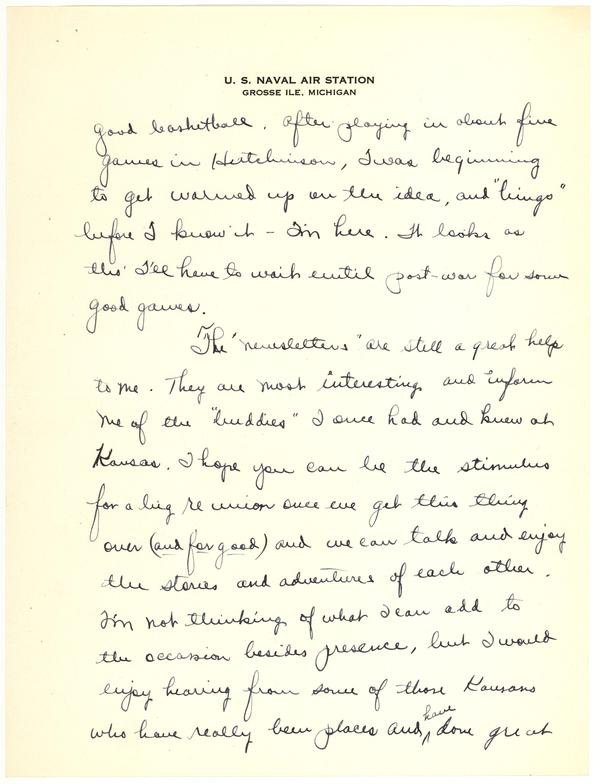 U. S. NAVAL AIR STATION
GROSSE ILE, MICHIGAN
good basketball. After playing in about five
games in Hutchinson, I was beginning
to get warmed up on the idea, and "bingo"
before I know it - I'm here. It looks as
tho' I'll have to wait until post-war for some
good games.
The "newsletters" are still a great help
to me. They are most interesting and inform
me of the "buddies" I once had and knew at
Kansas. I hope you can be the stimulus
for a big reunion once we get this thing
over (and for good) and we can talk and enjoy
the stories and adventures of each other.
I'm not thinking of what I can add to
the occassion besides presence, but I would
enjoy hearing from some of those Kansans
who have really been places and have done great